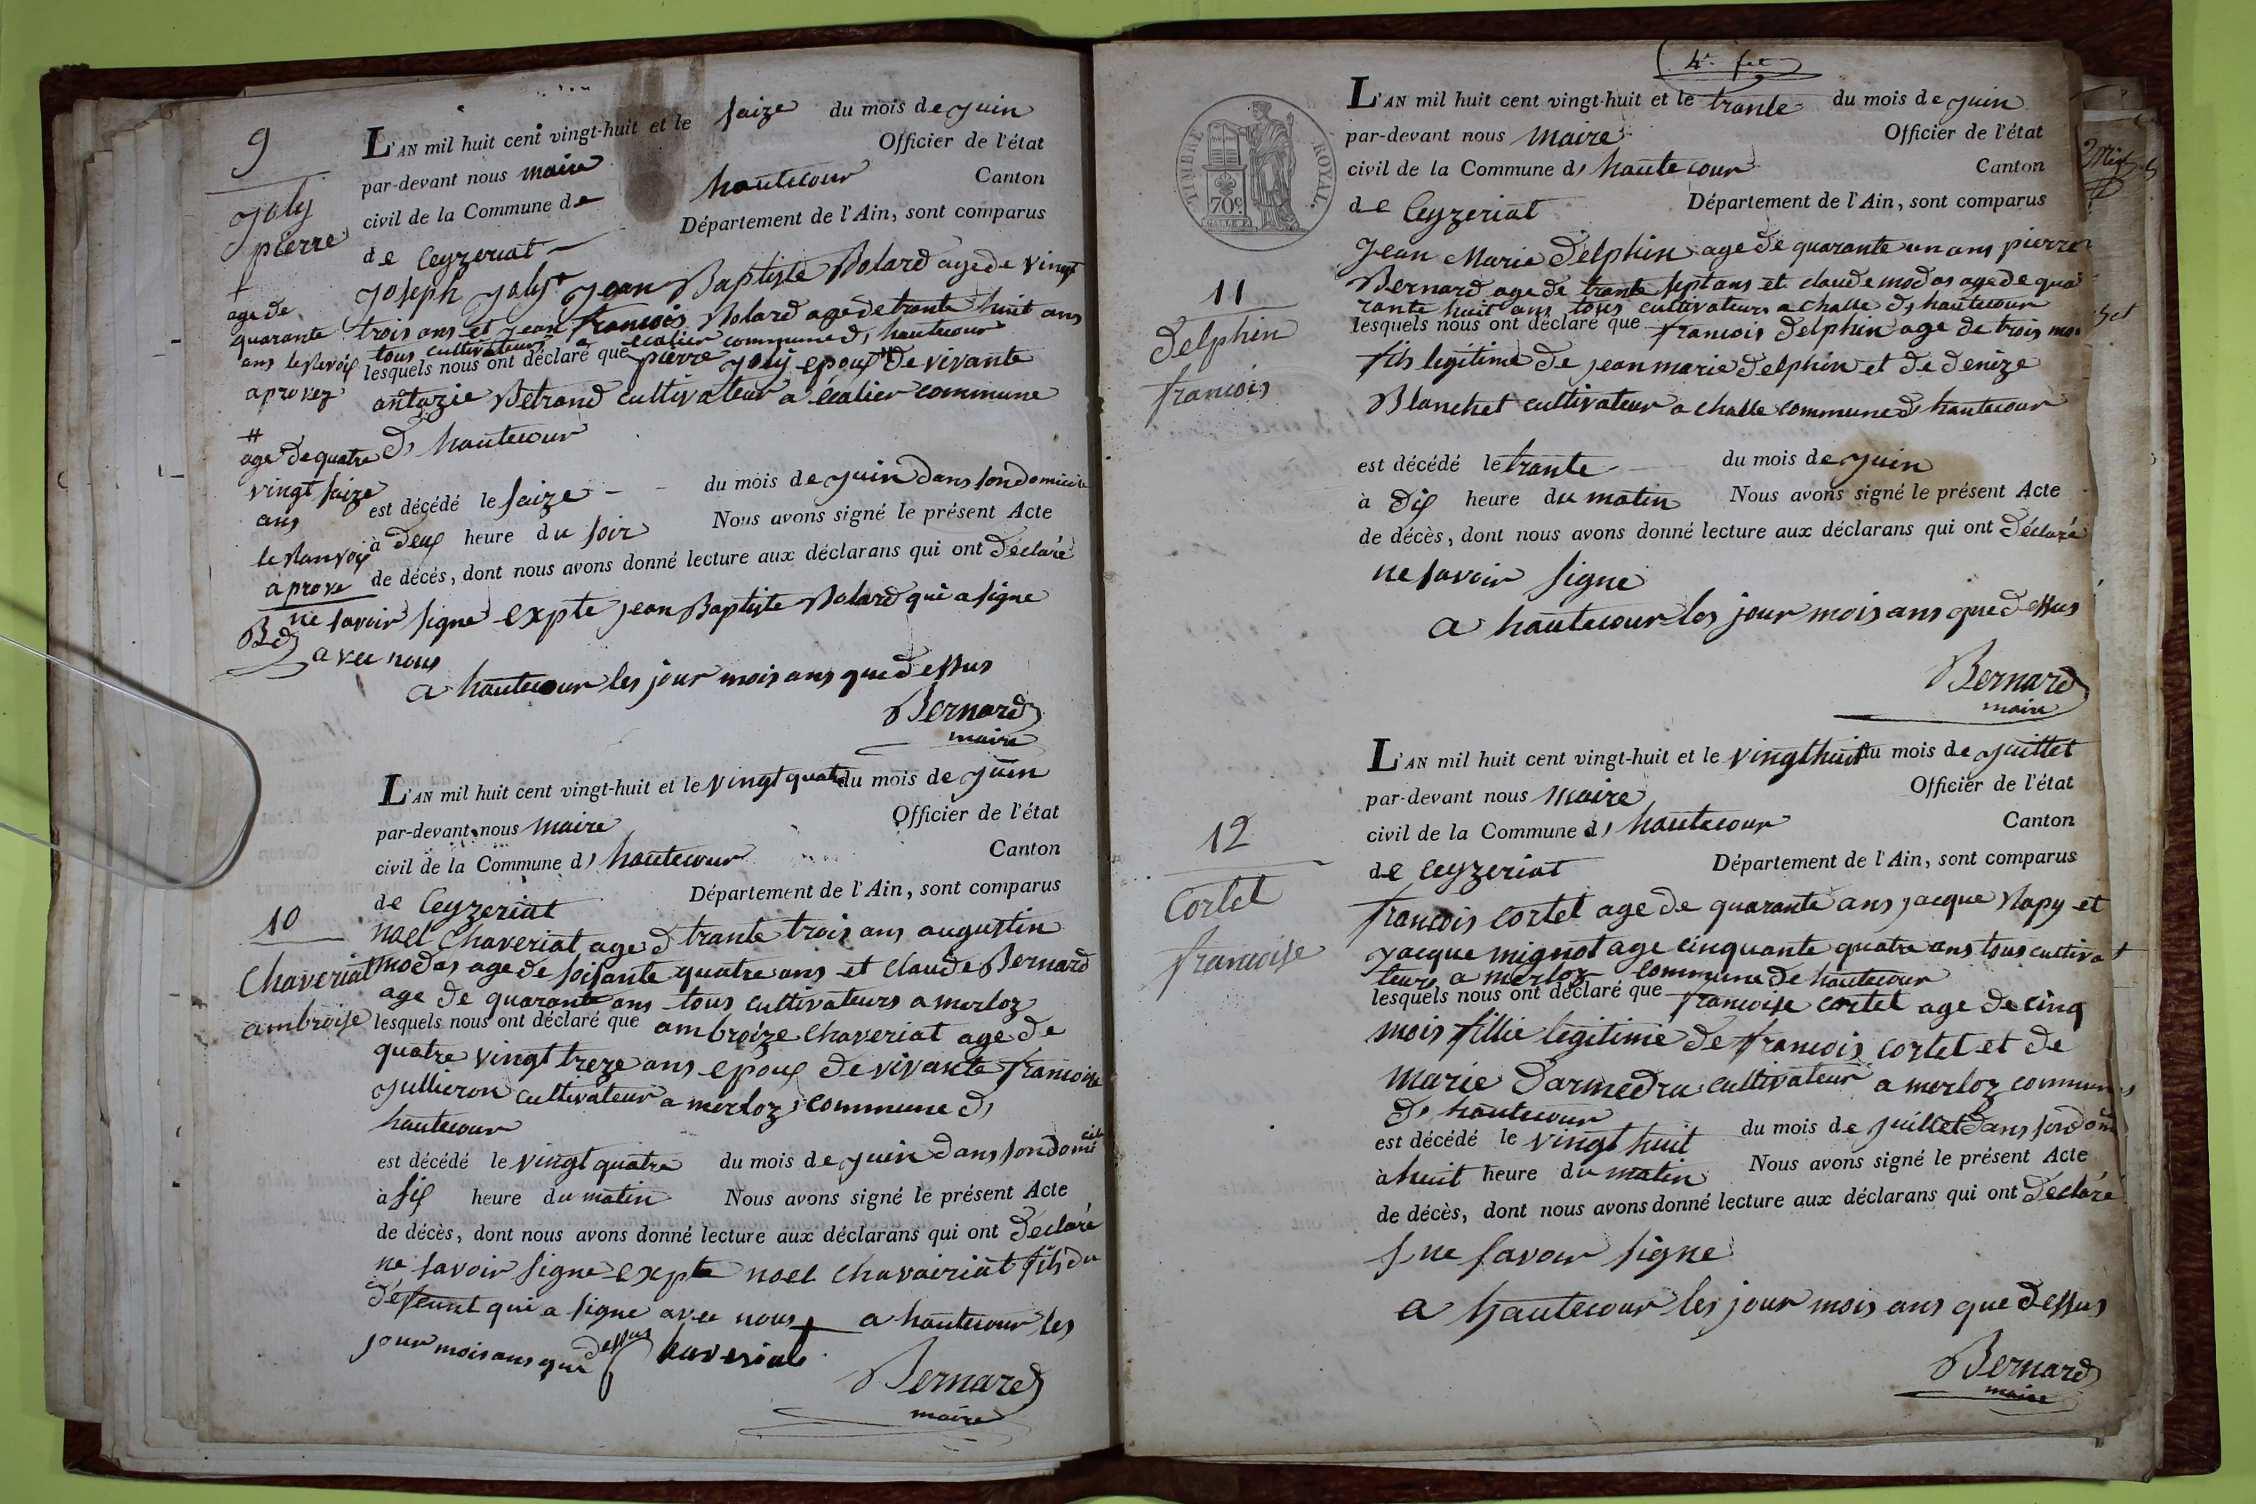 9
Joly
pierre
+
age de
quarante
ans le Renvoij
aprovez
#
age de quatre
vingt saize
ans
le Ranvoij
aprove
Bd
L'AN mil huit cent vingt-huit et le saize du mois de juin
par-devant nous maire Officier de l'état
civil de la Commune de hautecour Canton
de Ceyzeriat Département de l'Ain, sont comparus
Joseph Joly + Jean Baptiste Rolard age de vingt
trois ans et jean francois Rolard age de trante huit ans
tous cultivateurs a ecalier commune d, hautecour
lesquels nous ont déclaré que pierre joly epoux # de vivante
antazie Betrand cultivateur a écalier commune
d, hautecour
est décédé le saize - - du mois de juin dans son domicile
à deux heure du soir Nous avons signé le présent Acte
de décès, dont nous avons donné lecture aux déclarans qui ont declaré
ne savoir signe expte jean Baptiste Rolard qui a signe
avec nous
a hautecour les jour mois ans que dessus
Bernard
maire
10
Chaveriat
ambroise
L'AN mil huit cent vingt-huit et le vingt quatre du mois de juin
par-devant nous maire Officier de l'état
civil de la Commune d, hautecour Canton
de Ceyzeriat Département de l'Ain, sont comparus
noel Chaveriat age d trante trois ans augustin
modas age de soisante quatre ans et claude Bernard
age de quarante ans tous cultivateurs a merloz
lesquels nous ont déclaré que ambroize chaveriat age de
quatre vingt treze ans epoux de vivante francoise
jullieron cultivateur a merloz, commune d,
hautecour
est décédé le vingt quatre du mois de juin dans son domicile
à six heure du matin Nous avons signé le présent Acte
de décès, dont nous avons donné lecture aux déclarans qui ont declaré
ne savoir signe expte noel chavairiat fils du
défeunt qui a signe avec nous a hautecour les
jour mois ans que dessus Chaveriat
Bernard
maire
4e fet
TIMBRE ROYAL
70c
11
Delphin
francois
L'AN mil huit cent vingt-huit et le trante du mois de juin
par-devant nous maire Officier de l'état
civil de la Commune d, hautecour Canton
de Ceyzeriat Département de l'Ain, sont comparus
Jean Marie Delphin age de quarante un ans pierre
Bernard age de trante sept ans et claude modas age de qua
rante huit ans tous cultivateurs a challe d, hautecour
lesquels nous ont déclaré que francois delphin age de trois mois
fils legitime de jean marie delphin et de denize
Blanchet cultivateur a challe commune d, hautecour
est décédé le trante du mois de juin
à dix heure du matin Nous avons signé le présent Acte
de décès, dont nous avons donné lecture aux déclarans qui ont déclaré
ne savoir signe
a hautecour les jour mois ans que dessus
Bernard
maire
12
Cortet
francoise
L'AN mil huit cent vingt-huit et le vingt huit du mois de juillet
par-devant nous maire Officier de l'état
civil de la Commune d, hautecour Canton
de Ceyzeriat Département de l'Ain, sont comparus
francois cortet age de quarante ans jacque Rapy et
jacque mignot age cinquante quatre ans tous cultiva
teurs a merloz commune de hautecour
lesquels nous ont déclaré que francoise cortet age de cinq
mois fillie legitime de francois cortet et de
marie Darmedru cultivateur a merloz commune
d, hautecour
est décédé le vingt huit du mois de juillet dans son dom
à huit heure du matin Nous avons signé le présent Acte
de décès, dont nous avons donné lecture aux déclarans qui ont déclaré
ne savoir signe
a hautecour les jour mois ans que dessus
Bernard
maire